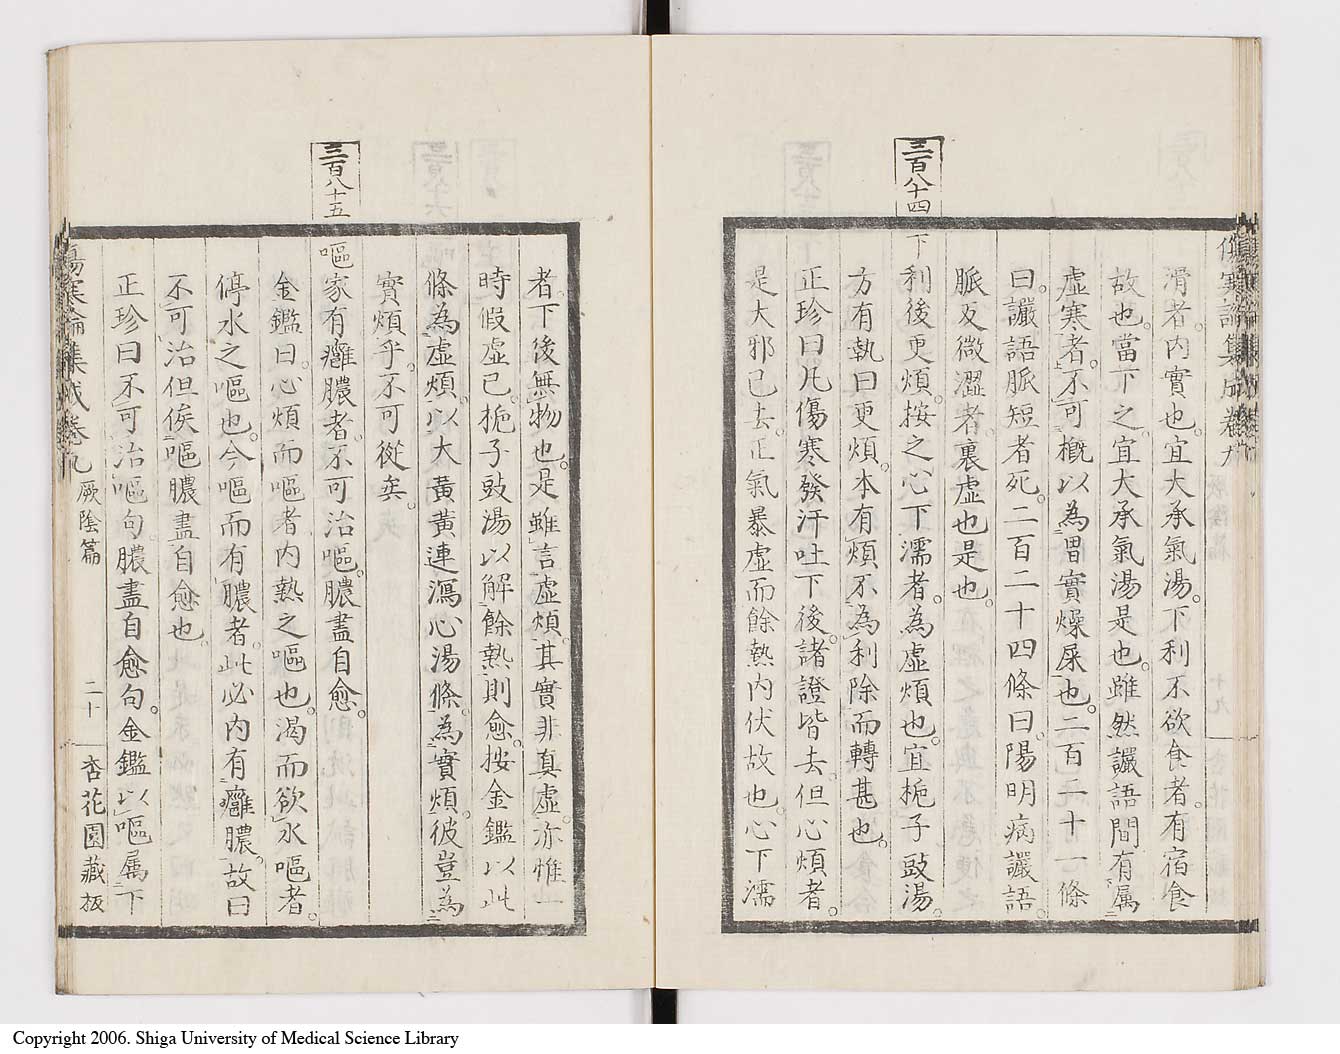 傷寒論集成卷九
滑者。內實也。宜大承氣湯。下利不欲食者。有宿食
故也。當下之。宜大承氣湯是也。雖然讝語間有属
虛寒者。不可槪以為胃實燥屎也。二百二十一條
曰。讝語脈短者死。二百二十四條曰。陽明病讝語。
脈反微澀者。裏虛也是也。
三百八十四
下利後更煩。按之心下濡者。為虛煩也。宜梔子豉湯。
方有執曰。更煩。本有煩。不為利除而轉甚也。
正珍曰。凡傷寒發汗吐下後。諸證皆去。但心煩者。
是大邪已去。正氣暴虛而餘熱內伏故也。心下濡
者。下後無物也。是雖言虛煩。其實非真虛。亦惟一
時假虛已。梔子豉湯以解餘熱則愈。按金鑑以此
條為虛煩。以大黃黃連瀉心湯條。為實煩。彼豈為
實煩乎。不可從矣。
三百八十五
嘔家有癰膿者。不可治嘔。膿盡自愈。
金鑑曰。心煩而嘔者。內熱之嘔也。渴而欲水嘔者。
停水之嘔也。今嘔而有膿者。此必內有癰膿。故曰
不可治。但俟嘔膿盡自愈也。
正珍曰。不可治嘔句。膿盡自愈句。金鑑以嘔属下
傷寒論集成卷九 厥陰篇 二十 杏花園藏板
Copyright 2006. Shiga University of Medical Science Library